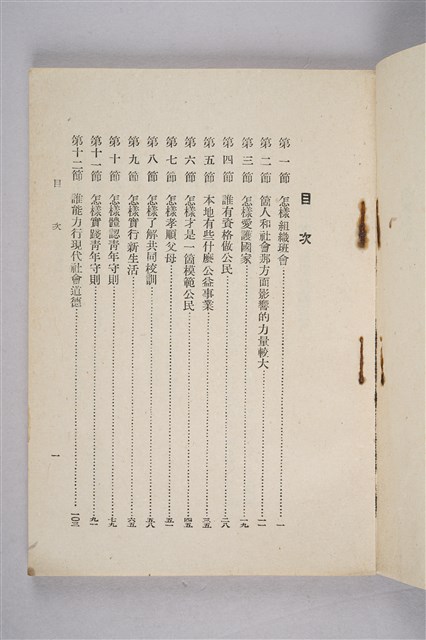 目次
第一節 怎樣組織班會……一
第二節 箇人和社會那方面影響的力量較大……一一
第三節 怎樣愛護國家……一九
第四節 誰有資格做公民……二八
第五節 本地有些什麼公益事業……三五
第六節 怎樣才是一箇模範公民……四五
第七節 怎樣孝順父母……五一
第八節 怎樣了解共同校訓……五八
第九節 怎樣實行新生活……六五
第十節 怎樣體認青年守則……七九
第十一節 怎樣實踐青年守則……九一
第十二節 誰能力行現代社會道德……一〇三
目次 一